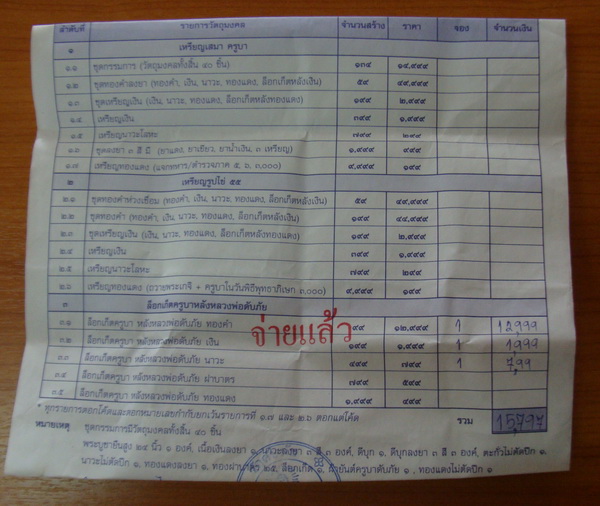 ลำดับที่ รายการวัตถุมงคล จำนวนสร้าง ราคา จอง จำนวนเงิน
๑ เหรียญเสมา ครูบา
๑.๑ ชุดกรรมการ (วัตถุมงคลทั้งสิ้น ๔๐ ชิ้น) ๑๓๔ ๑๔,๙๙๙
๑.๒ ชุดทองคำลงยา (ทองคำ, เงิน, นาวะ, ทองแดง, ล็อกเก็ตหลังเงิน) ๕๙ ๔๙,๙๙๙
๑.๓ ชุดเหรียญเงิน (เงิน, นาวะ, ทองแดง, ล็อกเก็ตหลังทองแดง) ๑๙๙ ๒,๙๙๙
๑.๔ เหรียญเงิน ๓๙๙ ๑,๙๙๙
๑.๕ เหรียญนาวะโลหะ ๗๙๙ ๒๙๙
๑.๖ ชุดลงยา ๓ สี มี (ยาแดง, ยาเขียว, ยาน้ำเงิน, ๓ เหรียญ) ๑,๙๙๙ ๙๙๙
๑.๗ เหรียญทองแดง (แจกทหาร/ตำรวจภาค ๕, ๖, ๓,๐๐๐) ๙,๙๙๙ ๑๙๙
๒ เหรียญรูปไข่ ๕๕
๒.๑ ชุดทองคำห่วงเชื่อม (ทองคำ, เงิน, นาวะ, ทองแดง, ล็อกเก็ตหลังเงิน) ๕๙ ๔๙,๙๙๙
๒.๒ ชุดทองคำ (ทองคำ, เงิน, นาวะ, ทองแดง, ล็อกเก็ตหลังเงิน) ๑๙๙ ๔๔,๙๙๙
๒.๓ ชุดเหรียญเงิน (เงิน, นาวะ, ทองแดง, ล็อกเก็ตหลังทองแดง) ๑๙๙ ๒,๙๙๙
๒.๔ เหรียญเงิน ๓๙๙ ๑,๙๙๙
๒.๕ เหรียญนาวะโลหะ ๗๙๙ ๒๙๙
๒.๖ เหรียญทองแดง (ถวายพระเกจิ + ครูบาในวันพิธีพุทธาภิเษก ๓,๐๐๐) ๙,๙๙๙ ๑๙๙
๓ ล็อกเก็ตครูบาหลังหลวงพ่อดับภัย
๓.๑ ล็อกเก็ตครูบา หลังหลวงพ่อดับภัย ทองคำ ๙๙ ๑๒,๙๙๙ 1 12999
จ่ายแล้ว
๓.๒ ล็อกเก็ตครูบา หลังหลวงพ่อดับภัย เงิน ๑๙๙ ๑,๙๙๙ 1 1999
๓.๓ ล็อกเก็ตครูบา หลังหลวงพ่อดับภัย นาวะ ๔๙๙ ๗๙๙ 1 799
๓.๔ ล็อกเก็ตครูบา หลังหลวงพ่อดับภัย ฝาบาตร ๗๙๙ ๕๙๙
๓.๕ ล็อกเก็ตครูบา หลังหลวงพ่อดับภัย ทองแดง ๑,๙๙๙ ๔๙๙
* ทุกรายการตอกโค้ดและตอกหมายเลขกำกับยกเว้นรายการที่ ๑.๗ และ ๒.๖ ตอกแต่โค้ด รวม 15797
หมายเหตุ ชุดกรรมการมีวัตถุมงคลทั้งสิ้น ๔๐ ชิ้น
พระบูชายืนสูง ๒๔ นิ้ว ๑ องค์, เนื้อเงินลงยา ๑, นาวะลงยา ๓ สี ๓ องค์, ดีบุก ๑, ดีบุกลงยา ๓ สี ๓ องค์, ตะกั่วไม่ตัดปีก ๑,
นาวะไม่ตัดปีก ๑, ทองแดงลงยา ๑, ทองฝาบาตร ๒๕, ล็อกเก็ต ๑, ครูบาดับภัย ๑, ทองแดงไม่ตัดปีก ๑